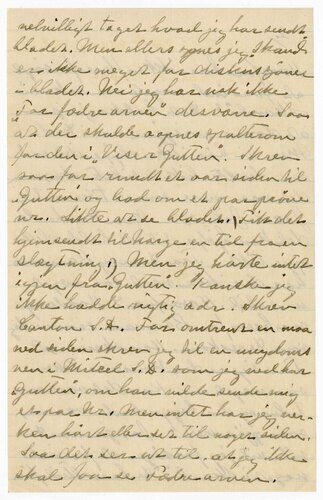 velvilligt taget hvad jeg har sendt
bladet. Men ellers synes jeg Skand
er ikke meget for diskussjoner
i bladet. Nei jeg har nok ikke
"For fædre arven" desværre. Saa
at der skulde aapnes spalterom
for den i "Visergutten". Skrev
saa for rundt et aar siden til
"Gutten" og bad om et par prøve
nr. Likte at se bladet, (Fikk det
hjemsendt til Norge en tid fra en
slægtning,) Men jeg hørte intet
igjen fra "Gutten. Kanske jeg
ikke hadde rigtig adr. Skrev
Canton S.D. For omtrent en maa
ned siden skrev jeg til en ungdoms
ven i Mitchel S.D. som jeg ved har
Gutten", om han vilde sende mig
et par Nr. Men intet har jeg ver-
ken hørt eller set til noget siden.
Saa det ser ut til at jeg ikke
skal faa se Fædrearven.